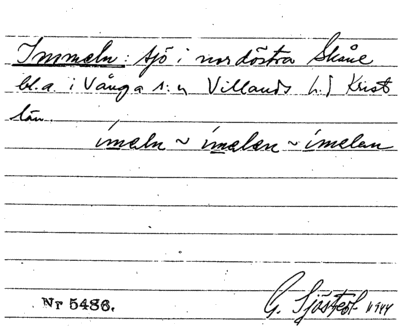 Immeln: sjö i nordöstra Skåne
bl.a. i Vånga s:n Villands h.d Krist
län.
ímeln ~ ímelən ~ ímelan
Nr 5486.
G. Sjöstedt 1944